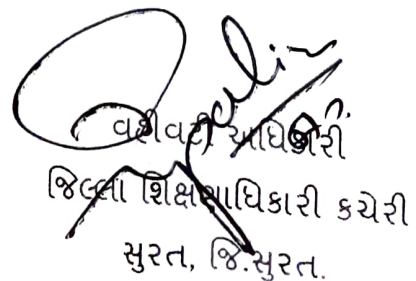 વહીવટી અધિકારી
જિલ્લા શિક્ષણાધિકારી કચેરી
સુરત, જિ.સુરત.